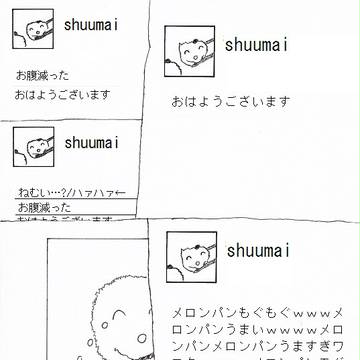 shuumai
お腹減った
おはようございます
shuumai
おはようございます
shuumai
ねむい…?/ハァハァ←
お腹減った
おはようございます
shuumai
メロンパンもぐもぐｗｗｗメ
ロンパンうまいｗｗｗｗメロ
ンパンメロンパンうますぎワ